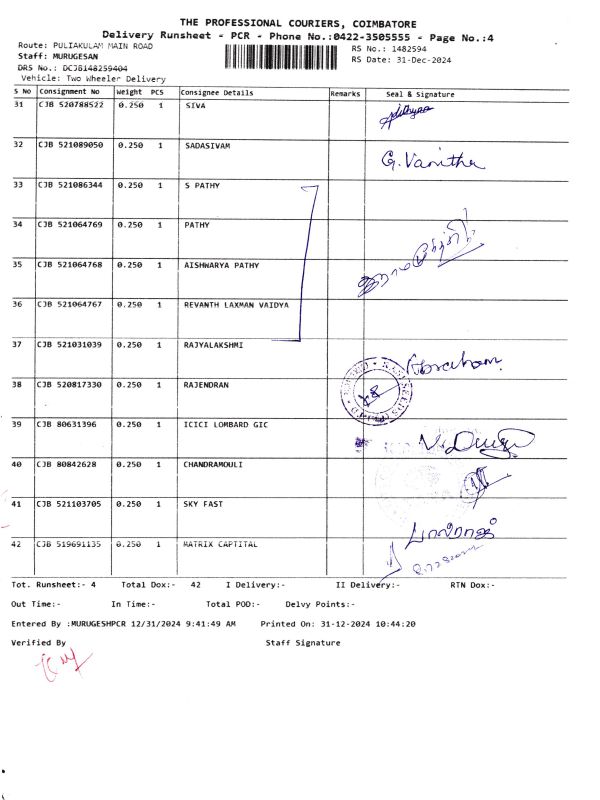 THE PROFESSIONAL COURIERS, COIMBATORE
Delivery Runsheet - PCR - Phone No.:0422-3505555 - Page No.:4
Route: PULIAKULAM MAIN ROAD
RS No.: 1482594
Staff: MURUGESAN
RS Date: 31-Dec-2024
DRS No.: DCJB148259404
Vehicle: Two Wheeler Delivery
S No Consignment No Weight PCS Consignee Details Remarks Seal & Signature
31 CJB 520788522 0.250 1 SIVA
32 CJB 521089050 0.250 1 SADASIVAM G. Vanitha
33 CJB 521086344 0.250 1 S PATHY
34 CJB 521064769 0.250 1 PATHY
35 CJB 521064768 0.250 1 AISHWARYA PATHY
36 CJB 521064767 0.250 1 REVANTH LAXMAN VAIDYA
37 CJB 521031039 0.250 1 RAJYALAKSHMI
38 CJB 520817330 0.250 1 RAJENDRAN
39 CJB 80631396 0.250 1 ICICI LOMBARD GIC
40 CJB 80842628 0.250 1 CHANDRAMOULI
41 CJB 521103705 0.250 1 SKY FAST
42 CJB 519691135 0.250 1 MATRIX CAPTITAL
Tot. Runsheet:- 4 Total Dox:- 42 I Delivery:- II Delivery:- RTN Dox:-
Out Time:- In Time:- Total POD:- Delvy Points:-
Entered By :MURUGESHPCR 12/31/2024 9:41:49 AM Printed On: 31-12-2024 10:44:20
Verified By Staff Signature